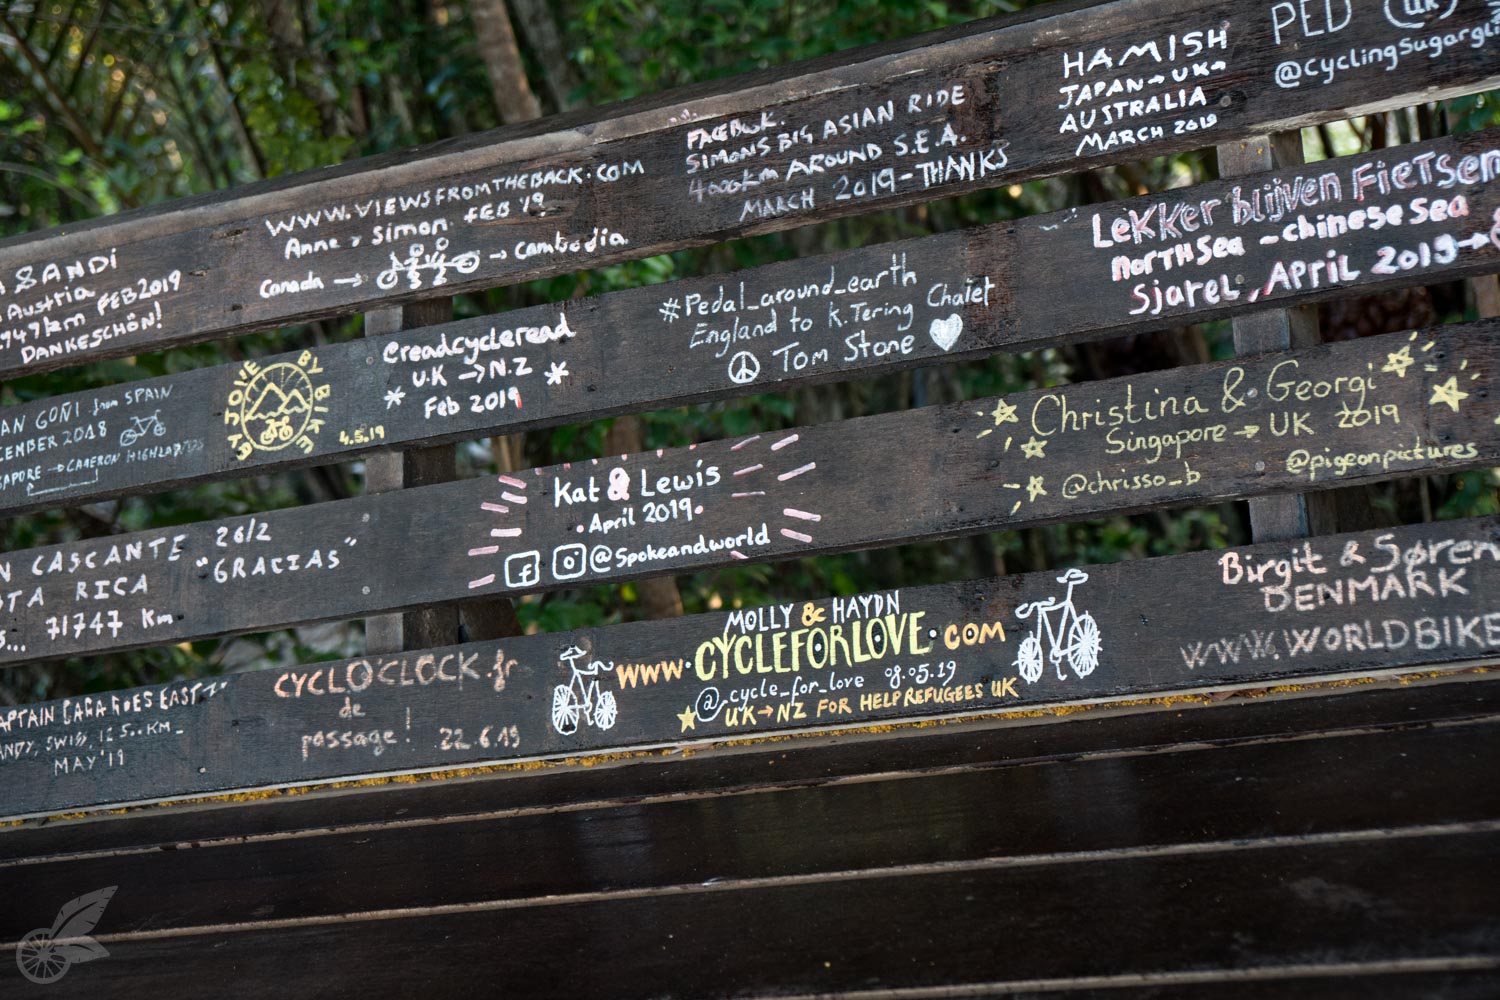 & ANDI
Austria
747km FEB 2019
DANKESCHÖN!
WWW.VIEWSFROMTHEBACK.COM
Anne & Simon. FEB '19
Canada → → Cambodia
FACEBOOK.
SIMONS BIG ASIAN RIDE
4000km AROUND S.E.A.
MARCH 2019 - THANKS
HAMISH
JAPAN → UK →
AUSTRALIA
MARCH 2019
PED (UK)
@cyclingsugargli
GOÑI from SPAIN
CEMBER 2018
APORE → CAMERON HIGHLANDS
BY BIKE
4.5.19
@readcycleread
U.K → N.Z
* Feb 2019 *
#Pedal_around_earth
England to K.Tering Chalet
Tom Stone
Lekker blijven Fietsen
NORTH Sea - chinese sea
Sjarel, APRIL 2019 →
N CASCANTE 26/2
STA RICA "GRACIAS"
71747 Km
Kat & Lewis
April 2019
@Spokeandworld
Christina & Georgi
Singapore → UK 2019
@chrisso_b @pigeonpictures
APTAIN GOES EAST
ANDY, SWISS,
MAY '19
CYCLO'CLOCK.fr
de
passage! 22.6.19
MOLLY & HAYDN
WWW.CYCLEFORLOVE.COM
@_cycle_for_love 08.05.19
UK → NZ FOR HELPREFUGEES UK
Birgit & Søren
DENMARK
WWW.WORLDBIKE